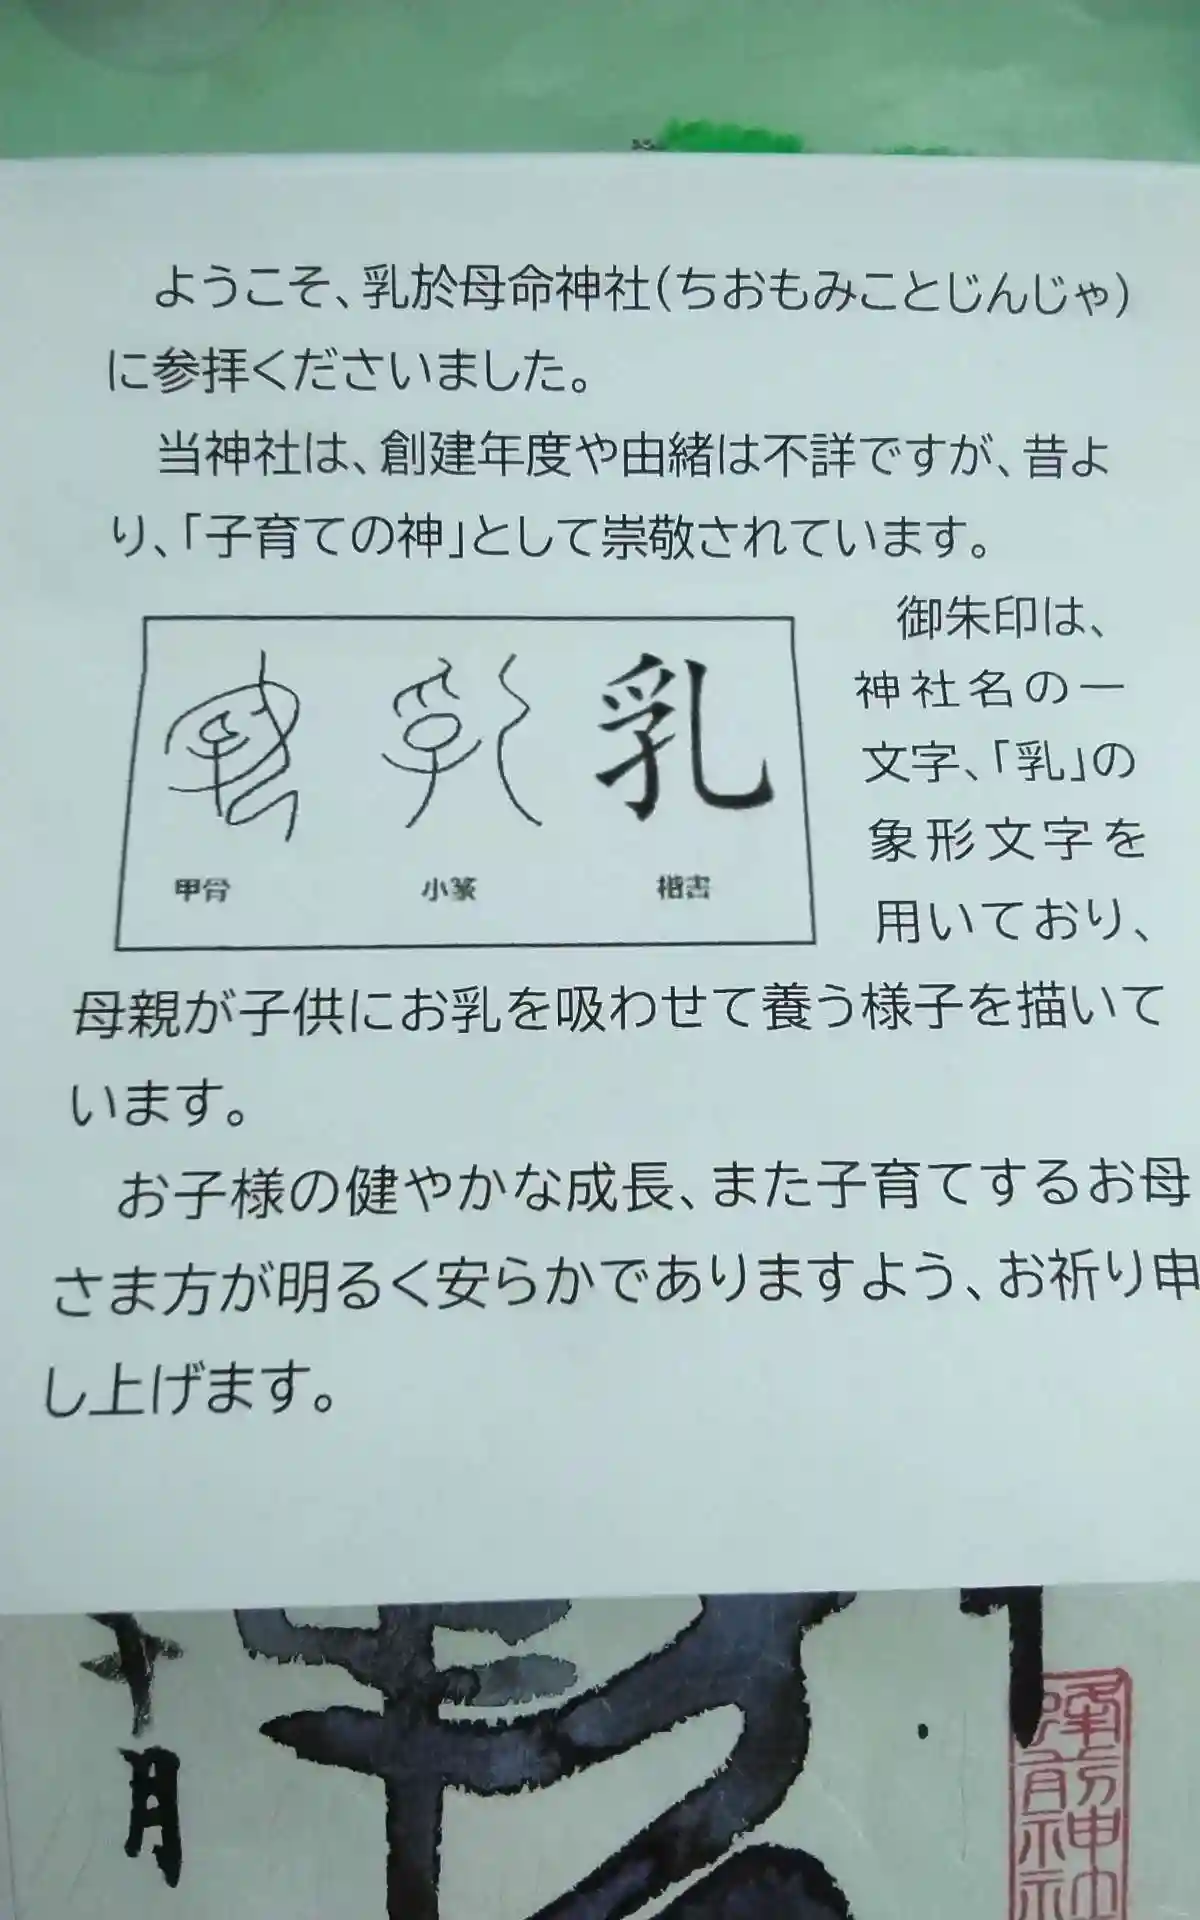 ようこそ、乳於母命神社(ちおもみことじんじゃ)
に参拝くださいました。
当神社は、創建年度や由緒は不詳ですが、昔よ
り、「子育ての神」として崇敬されています。
御朱印は、
神社名の一
文字、「乳」の
象形文字を
用いており、
乳
甲骨
小篆
楷書
母親が子供にお乳を吸わせて養う様子を描いて
います。
お子様の健やかな成長、また子育てするお母
さま方が明るく安らかでありますよう、お祈り申
し上げます。
月